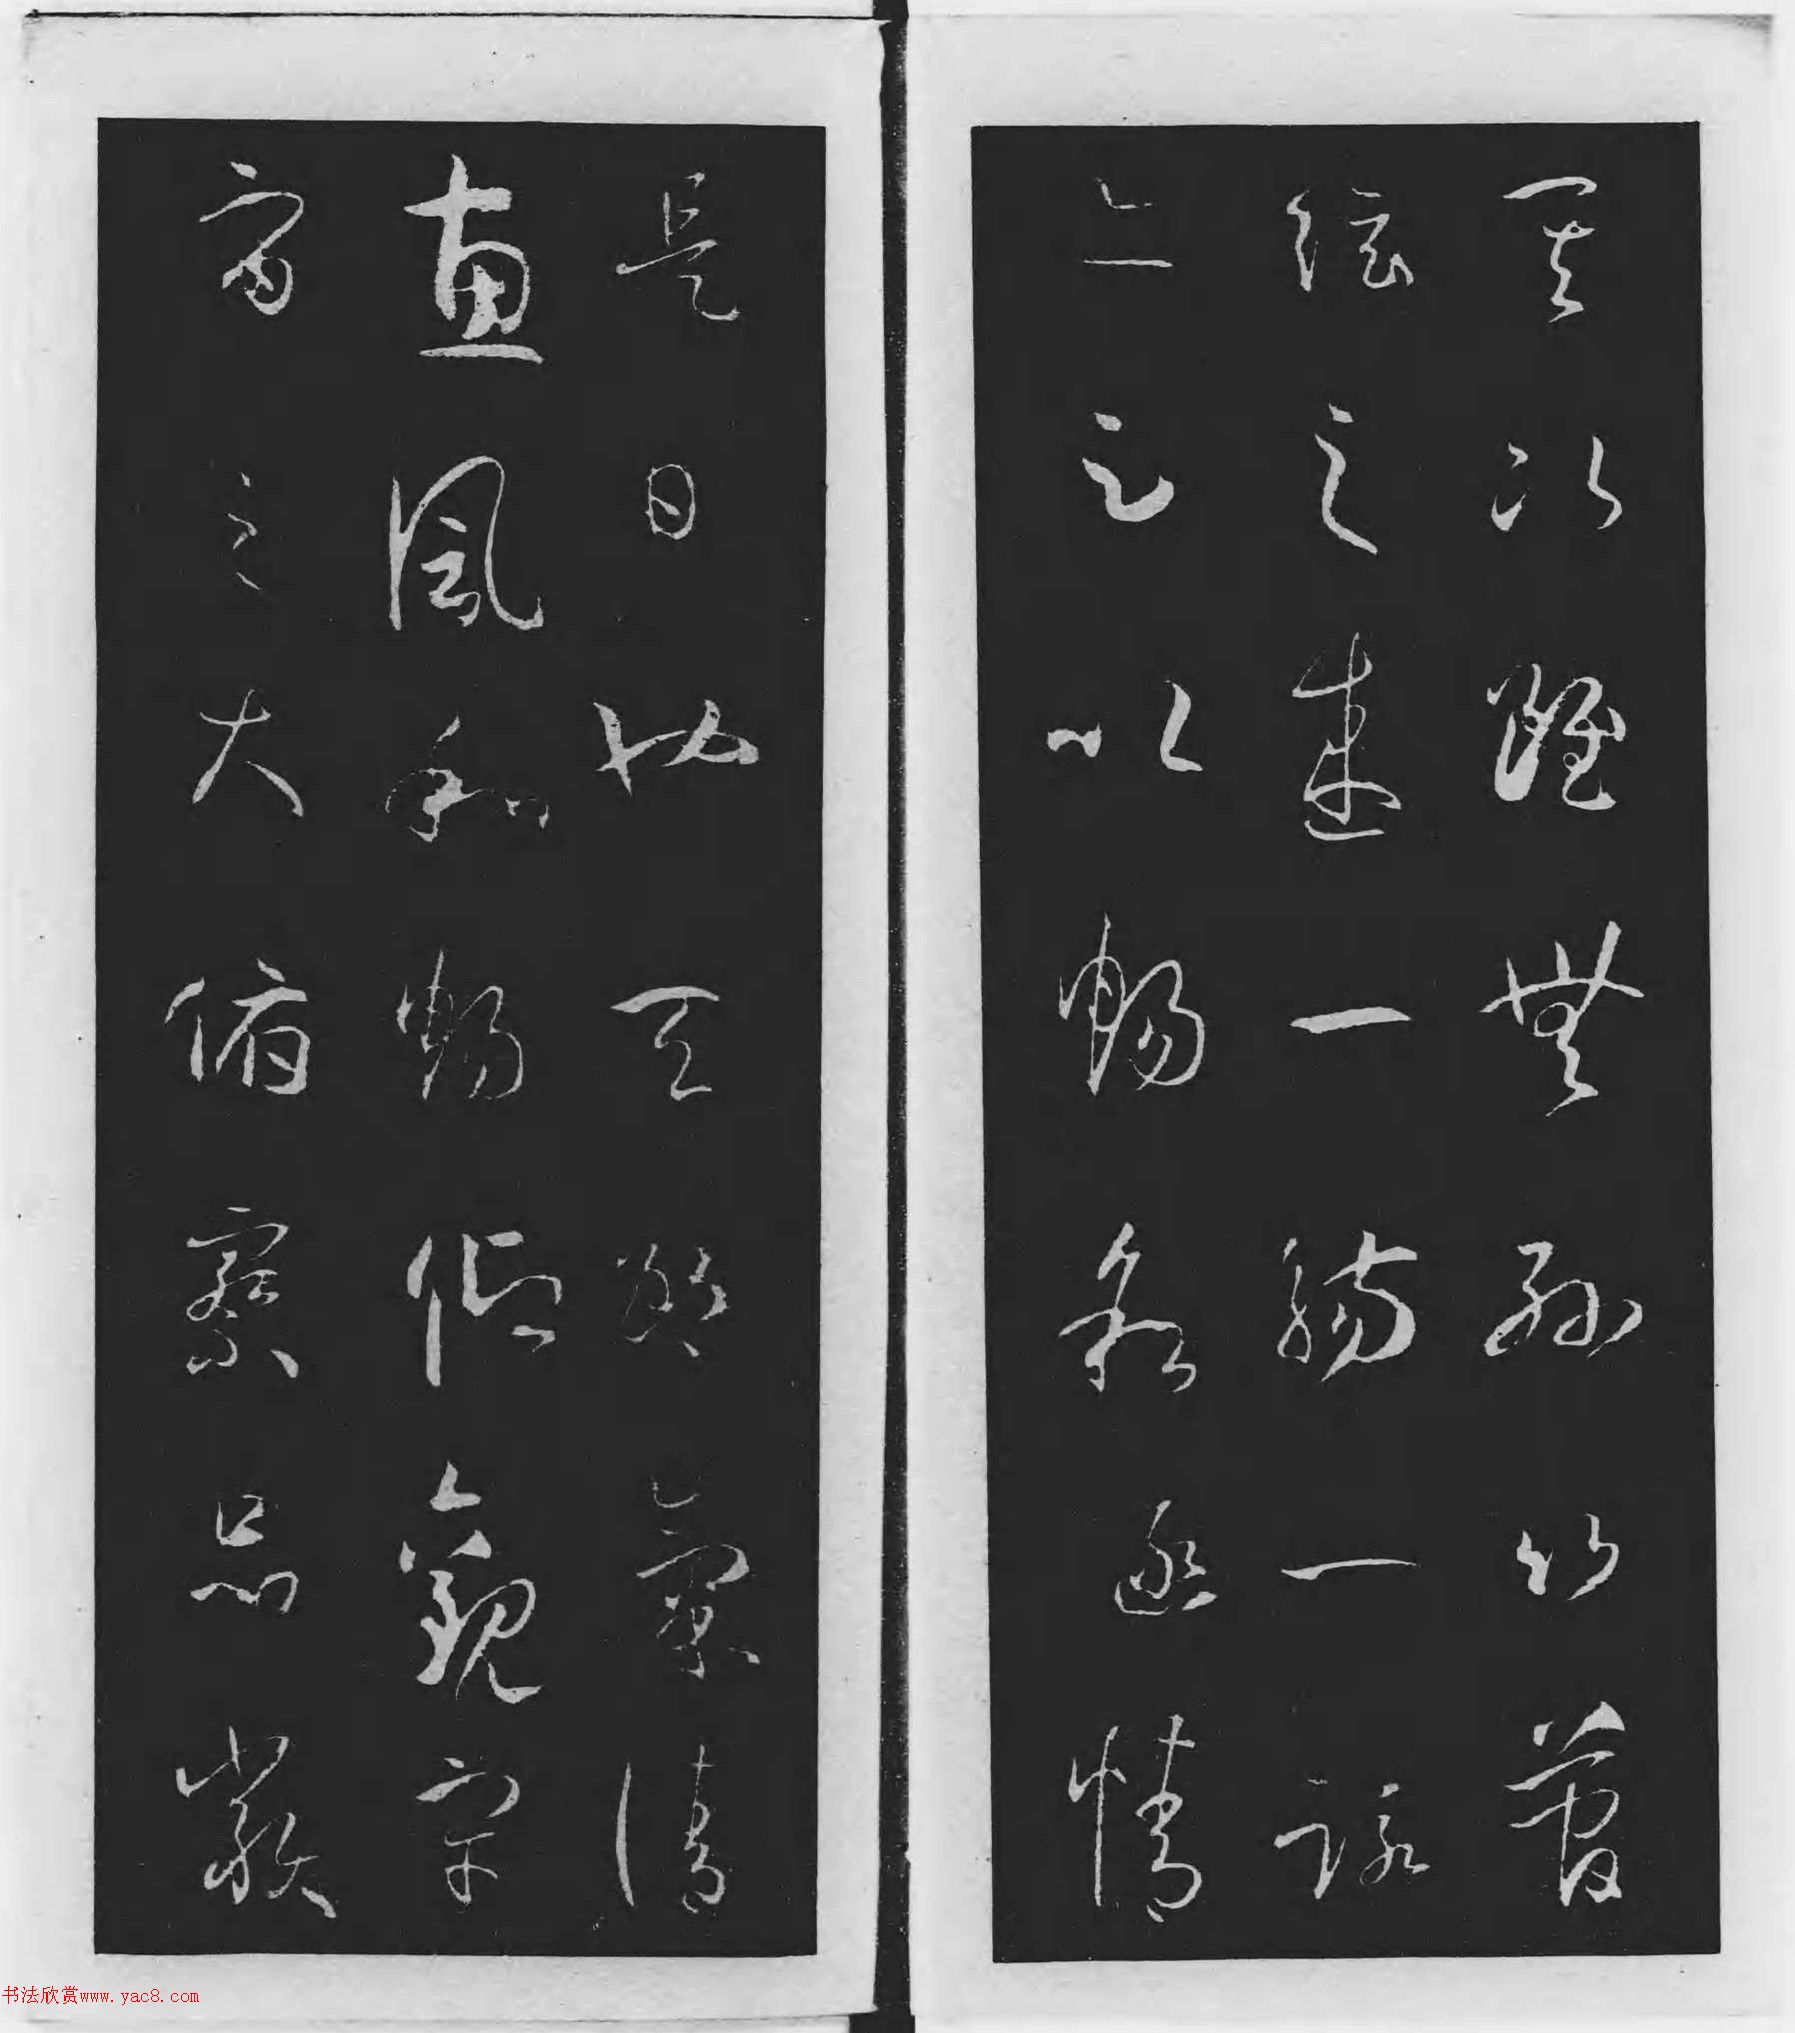 其次雖無絲竹管
絃之盛一觴一詠
亦足以暢敘幽情
是日也天朗氣清
惠風和暢仰觀宇
宙之大俯察品類
书法欣赏www.yac8.com